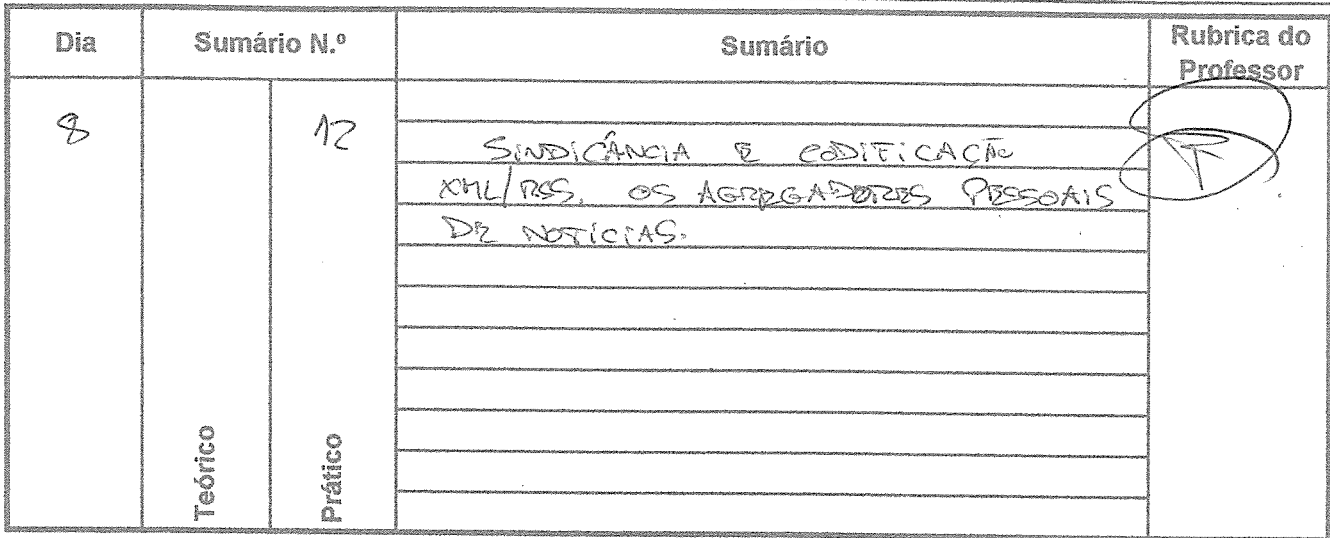 Dia Sumário N.º Sumário Rubrica do
Professor
8 12
SINDICÂNCIA E CODIFICAÇÃO
XML/RSS. OS AGREGADORES PESSOAIS
DE NOTÍCIAS.
Teórico Prático